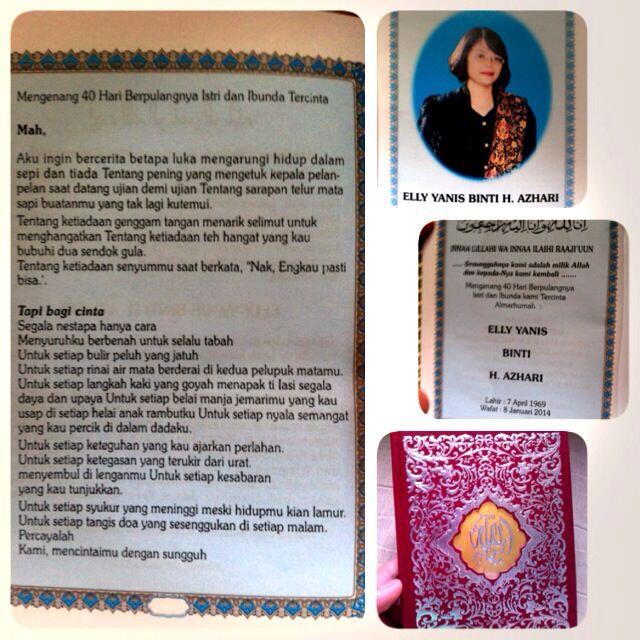 Mengenang 40 Hari Berpulangnya Istri dan Ibunda Tercinta
Mah,
Aku ingin bercerita betapa luka mengarungi hidup dalam
sepi dan tiada Tentang pening yang mengetuk kepala pelan-
pelan saat datang ujian demi ujian Tentang sarapan telur mata
sapi buatanmu yang tak lagi kutemui.
Tentang ketiadaan genggam tangan menarik selimut untuk
menghangatkan Tentang ketiadaan teh hangat yang kau
bubuhi dua sendok gula.
Tentang ketiadaan senyummu saat berkata, "Nak, Engkau pasti
bisa.".
Tapi bagi cinta
Segala nestapa hanya cara
Menyuruhku berbenah untuk selalu tabah
Untuk setiap bulir peluh yang jatuh
Untuk setiap rinai air mata berderai di kedua pelupuk matamu.
Untuk setiap langkah kaki yang goyah menapak ti lasi segala
daya dan upaya Untuk setiap belai manja jemarimu yang kau
usap di setiap helai anak rambutku Untuk setiap nyala semangat
yang kau percik di dalam dadaku.
Untuk setiap keteguhan yang kau ajarkan perlahan.
Untuk setiap ketegasan yang terukir dari urat.
menyembul di lenganmu Untuk setiap kesabaran
yang kau tunjukkan.
Untuk setiap syukur yang meninggi meski hidupmu kian lamur.
Untuk setiap tangis doa yang sesenggukan di setiap malam.
Percayalah
Kami, mencintaimu dengan sungguh
ELLY YANIS BINTI H. AZHARI
إنا لله وإنا إليه راجعون
INNAA LILLAHI WA INNAA ILAIHI RAAJI'UUN
..... Sesungguhnya kami adalah milik Allah
dan kepada-Nya kami kembali .......
Mengenang 40 Hari Berpulangnya
Istri dan Ibunda kami Tercinta
Almarhumah :
ELLY YANIS
BINTI
H. AZHARI
Lahir : 7 April 1969
Wafat : 8 Januari 2014